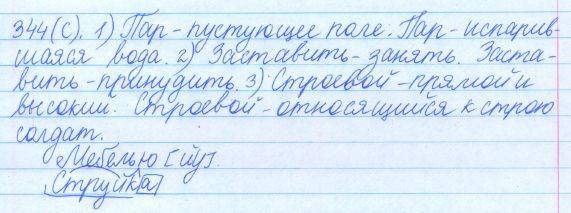 344(с). 1) Пар - пустующее поле. Пар - испарив-
шаяся вода. 2) Заставить - занять. Заста-
вить - принудить. 3) Строевой - прямой и
высокий. Строевой - относящийся к строю
солдат.
Мебелью [йу].
Струйка